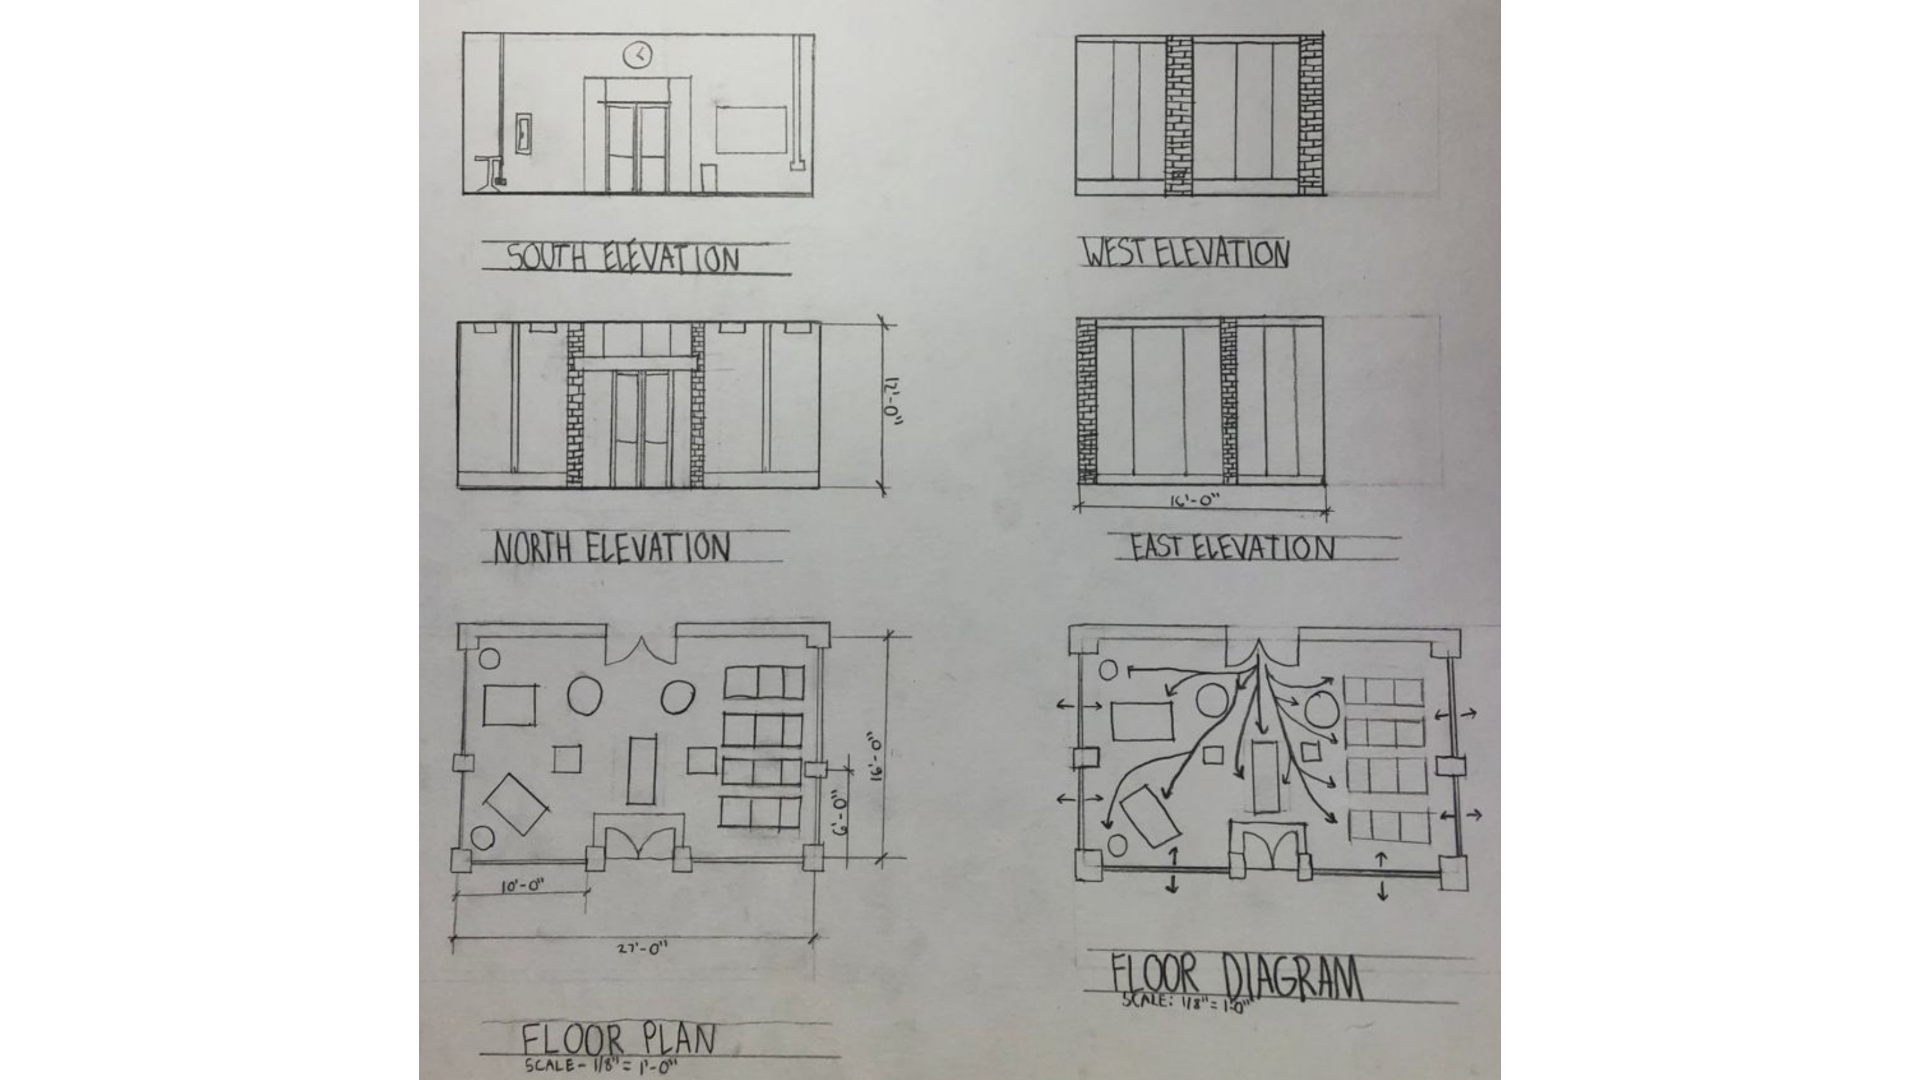 SOUTH ELEVATION
WEST ELEVATION
12'-0"
NORTH ELEVATION
16'-0"
EAST ELEVATION
16'-0"
6'-0"
10'-0"
27'-0"
FLOOR DIAGRAM
SCALE: 1/8" = 1'-0"
FLOOR PLAN
SCALE - 1/8" = 1'-0"